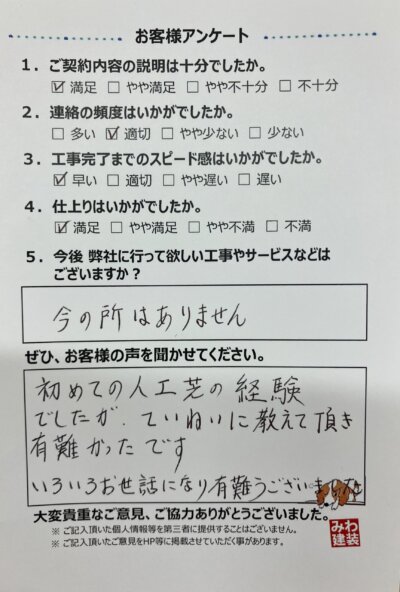 お客様アンケート
1．ご契約内容の説明は十分でしたか。
☑ 満足 □ やや満足 □ やや不十分 □ 不十分
2．連絡の頻度はいかがでしたか。
□ 多い ☑ 適切 □ やや少ない □ 少ない
3．工事完了までのスピード感はいかがでしたか。
☑ 早い □ 適切 □ やや遅い □ 遅い
4．仕上りはいかがでしたか。
☑ 満足 □ やや満足 □ やや不満 □ 不満
5．今後 弊社に行って欲しい工事やサービスなどは
ございますか？
今の所はありません
ぜひ、お客様の声を聞かせてください。
初めての人工芝の経験
でしたが、ていねいに教えて頂き
有難かったです
いろいろお世話になり有難うございました
大変貴重なご意見、ご協力ありがとうございました。
※ ご記入頂いた個人情報等を第三者に提供することはございません。
※ ご記入頂いたご意見をHP等に掲載させていただく事があります。
みわ
建装